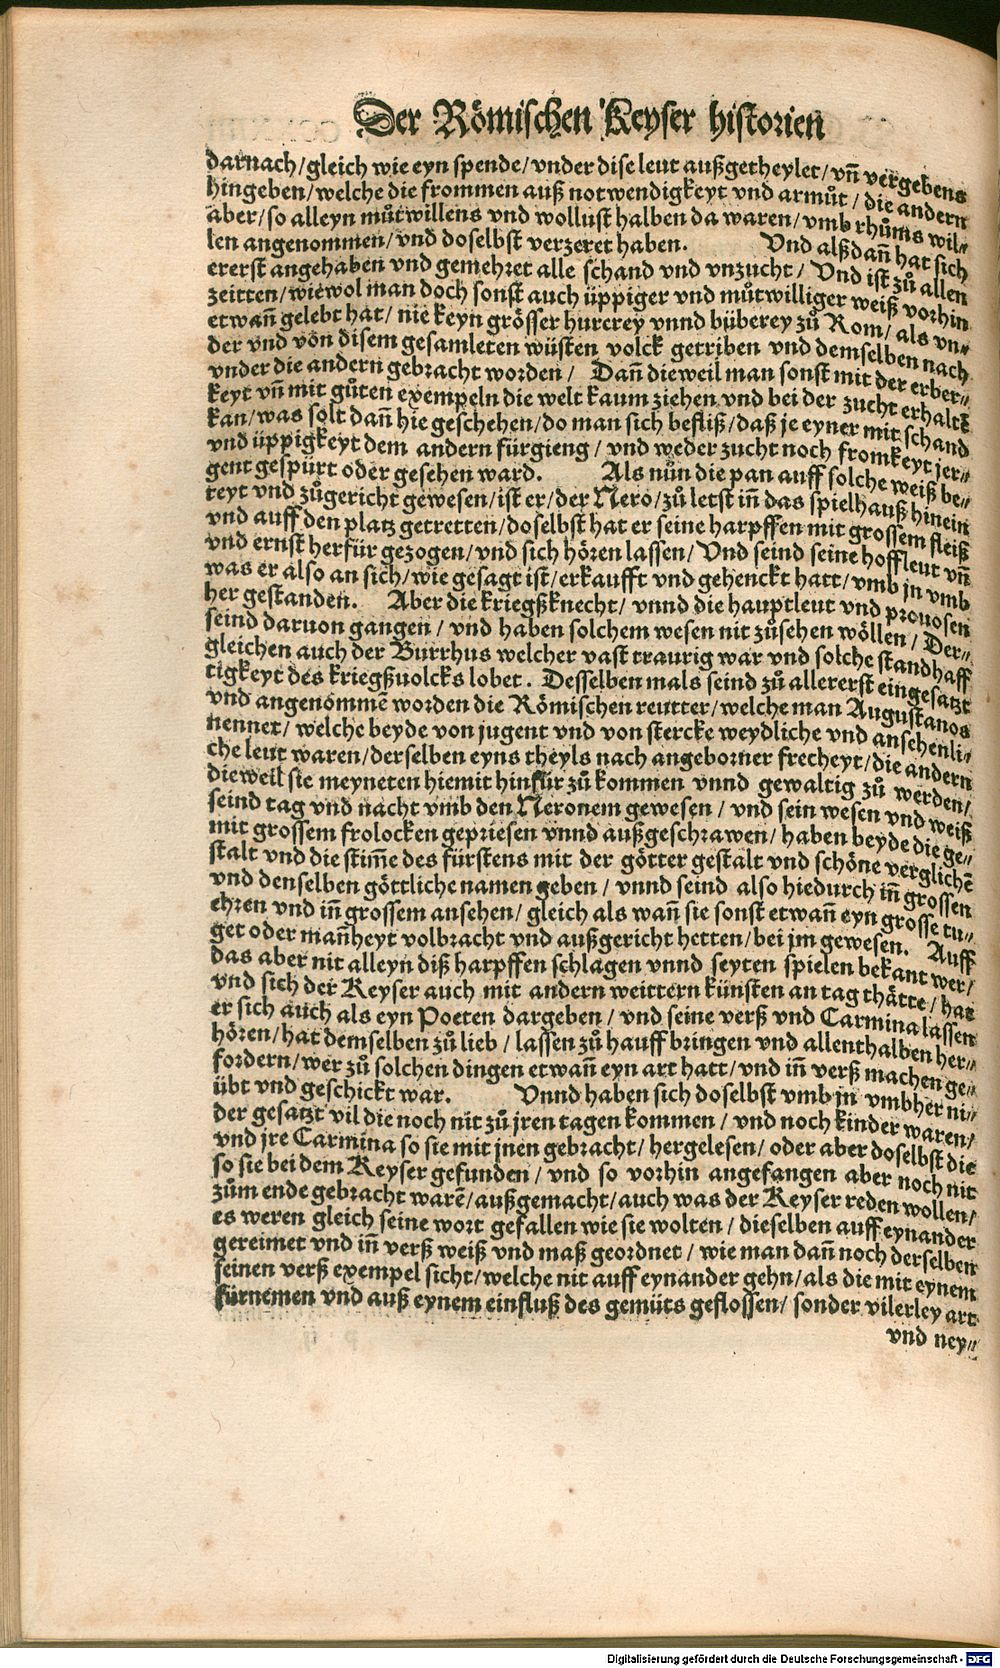 Der Römischen Keyser historien
darnach/gleich wie eyn spende/vnder dise leut außgetheylet/vñ vergebens
hingeben/welche die frommen auß notwendigkeyt vnd armůt/die andern
aber/so alleyn můtwillens vnd wollust halben da waren/vmb rhůms wil⸗
len angenommen/vnd doselbst verzeret haben. Vnd alßdañ hat sich
ererst angehaben vnd gemehret alle schand vnd vnzucht/Vnd ist zů allen
zeitten/wiewol man doch sonst auch üppiger vnd můtwilliger weiß vorhin
etwañ gelebt hat/nie keyn grösser hurerey vnnd büberey zů Rom/als vn⸗
der vnd von disem gesamleten wüsten volck getriben vnd demselben nach
vnder die andern gebracht worden/ Dañ dieweil man sonst mit der erber⸗
keyt vñ mit gůten exempeln die welt kaum ziehen vnd bei der zucht erhaltē
kan/was solt dañ hie geschehen/do man sich befliß/daß je eyner mit schand
vnd üppigkeyt dem andern fürgieng/vnd weder zucht noch fromkeyt jer⸗
gent gespürt oder gesehen ward. Als nůn die pan auff solche weiß be⸗
reyt vnd zůgericht gewesen/ist er/der Nero/zů letst iñ das spielhauß hinein
vnd auff den platz getretten/doselbst hat er seine harpffen mit grossem fleiß
vnd ernst herfür gezogen/vnd sich hören lassen/Vnd seind seine hoffleut vñ
was er also an sich/wie gesagt ist/erkaufft vnd gehenckt hatt/vmb jn vmb
her gestanden. Aber die kriegßknecht/vnnd die hauptleut vnd prouosen
seind daruon gangen/vnd haben solchem wesen nit zůsehen wöllen/Der⸗
gleichen auch der Burrhus welcher vast traurig war vnd solche standhaff
tigkeyt des kriegßuolcks lobet. Desselben mals seind zů allererst eingesatzt
vnd angenommē worden die Römischen reutter/welche man Augustanos
nennet/welche beyde von jugent vnd von stercke weydliche vnd ansehenli⸗
che leut waren/derselben eyns theyls nach angeborner frecheyt/die andern
dieweil sie meyneten hiemit hinfür zů kommen vnnd gewaltig zů werden/
seind tag vnd nacht vmb den Neronem gewesen/vnd sein wesen vnd weiß
mit grossem frolocken gepriesen vnnd außgeschrawen/haben beyde die ge⸗
stalt vnd die stim̃e des fürstens mit der götter gestalt vnd schöne verglichē
vnd denselben göttliche namen geben/vnnd seind also hiedurch iñ grossen
ehren vnd iñ grossem ansehen/gleich als wañ sie sonst etwañ eyn grosse tu⸗
get oder mañheyt volbracht vnd außgericht hetten/bei jm gewesen. Auff
das aber nit alleyn diß harpffen schlagen vnnd seyten spielen bekant wer/
vnd sich der Keyser auch mit andern weittern künsten an tag thätte/hat
er sich auch als eyn Poeten dargeben/vnd seine verß vnd Carmina lassen
hören/hat demselben zů lieb/lassen zů hauff bringen vnd allenthalben her⸗
fordern/wer zů solchen dingen etwañ eyn art hatt/vnd iñ verß machen ge⸗
übt vnd geschickt war. Vnnd haben sich doselbst vmb jn vmbher ni⸗
der gesatzt vil die noch nit zů jren tagen kommen/vnd noch kinder waren/
vnd jre Carmina so sie mit jnen gebracht/hergelesen/oder aber doselbst die
so sie bei dem Keyser gefunden/vnd so vorhin angefangen aber noch nit
zům ende gebracht warē/außgemacht/auch was der Keyser reden wollen/
es weren gleich seine wort gefallen wie sie wolten/dieselben auff eynander
gereimet vnd iñ verß weiß vnd maß geordnet/wie man dañ noch derselben
seinen verß exempel sicht/welche nit auff eynander gehn/als die mit eynem
fürnemen vnd auß eynem einfluß des gemüts geflossen/sonder vilerley art
vnd ney⸗
Digitalisierung gefördert durch die Deutsche Forschungsgemeinschaft - DFG